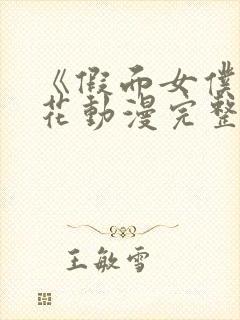 《假面女僕
花動漫完整
王敏雪